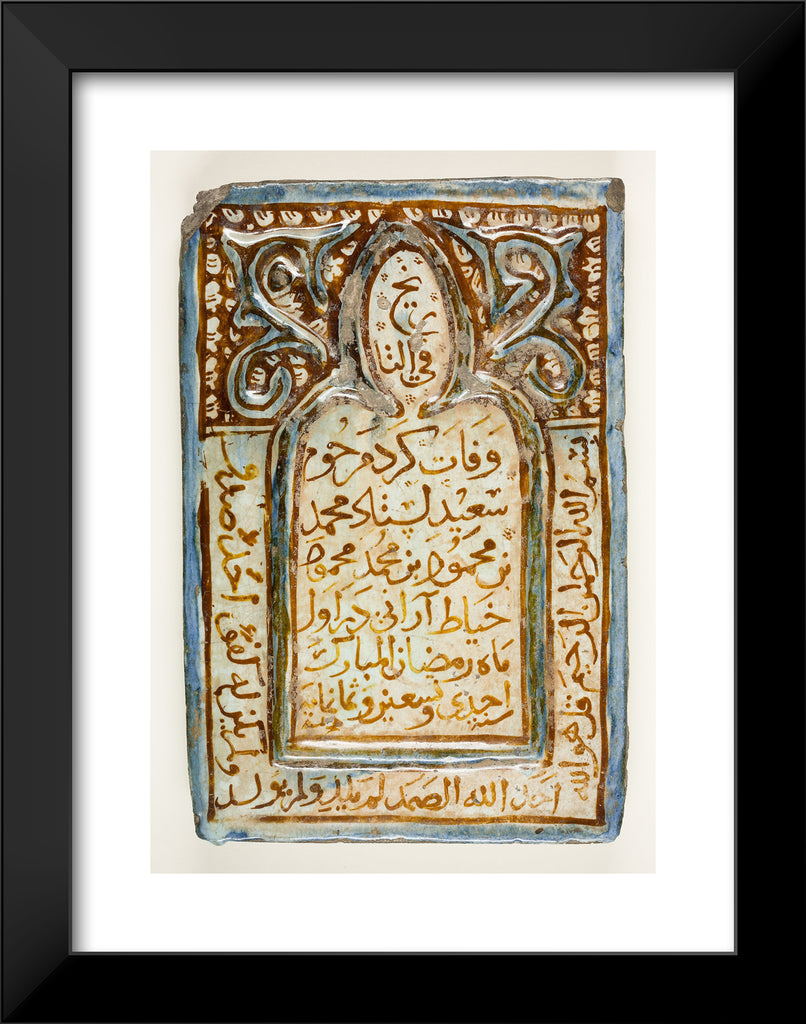 في التا
ريخ
وفات کرد مرحوم
سعید استاد محمد
بن محمود بن محمد محمود
خیاط آرانی در اول
ماه رمضان المبارک
سنة احدی و تسعین و ثمانمایة
بسم الله الرحمن الرحيم قل هو الله
احد الله الصمد لم يلد ولم يولد
ولم يكن له كفوا احد